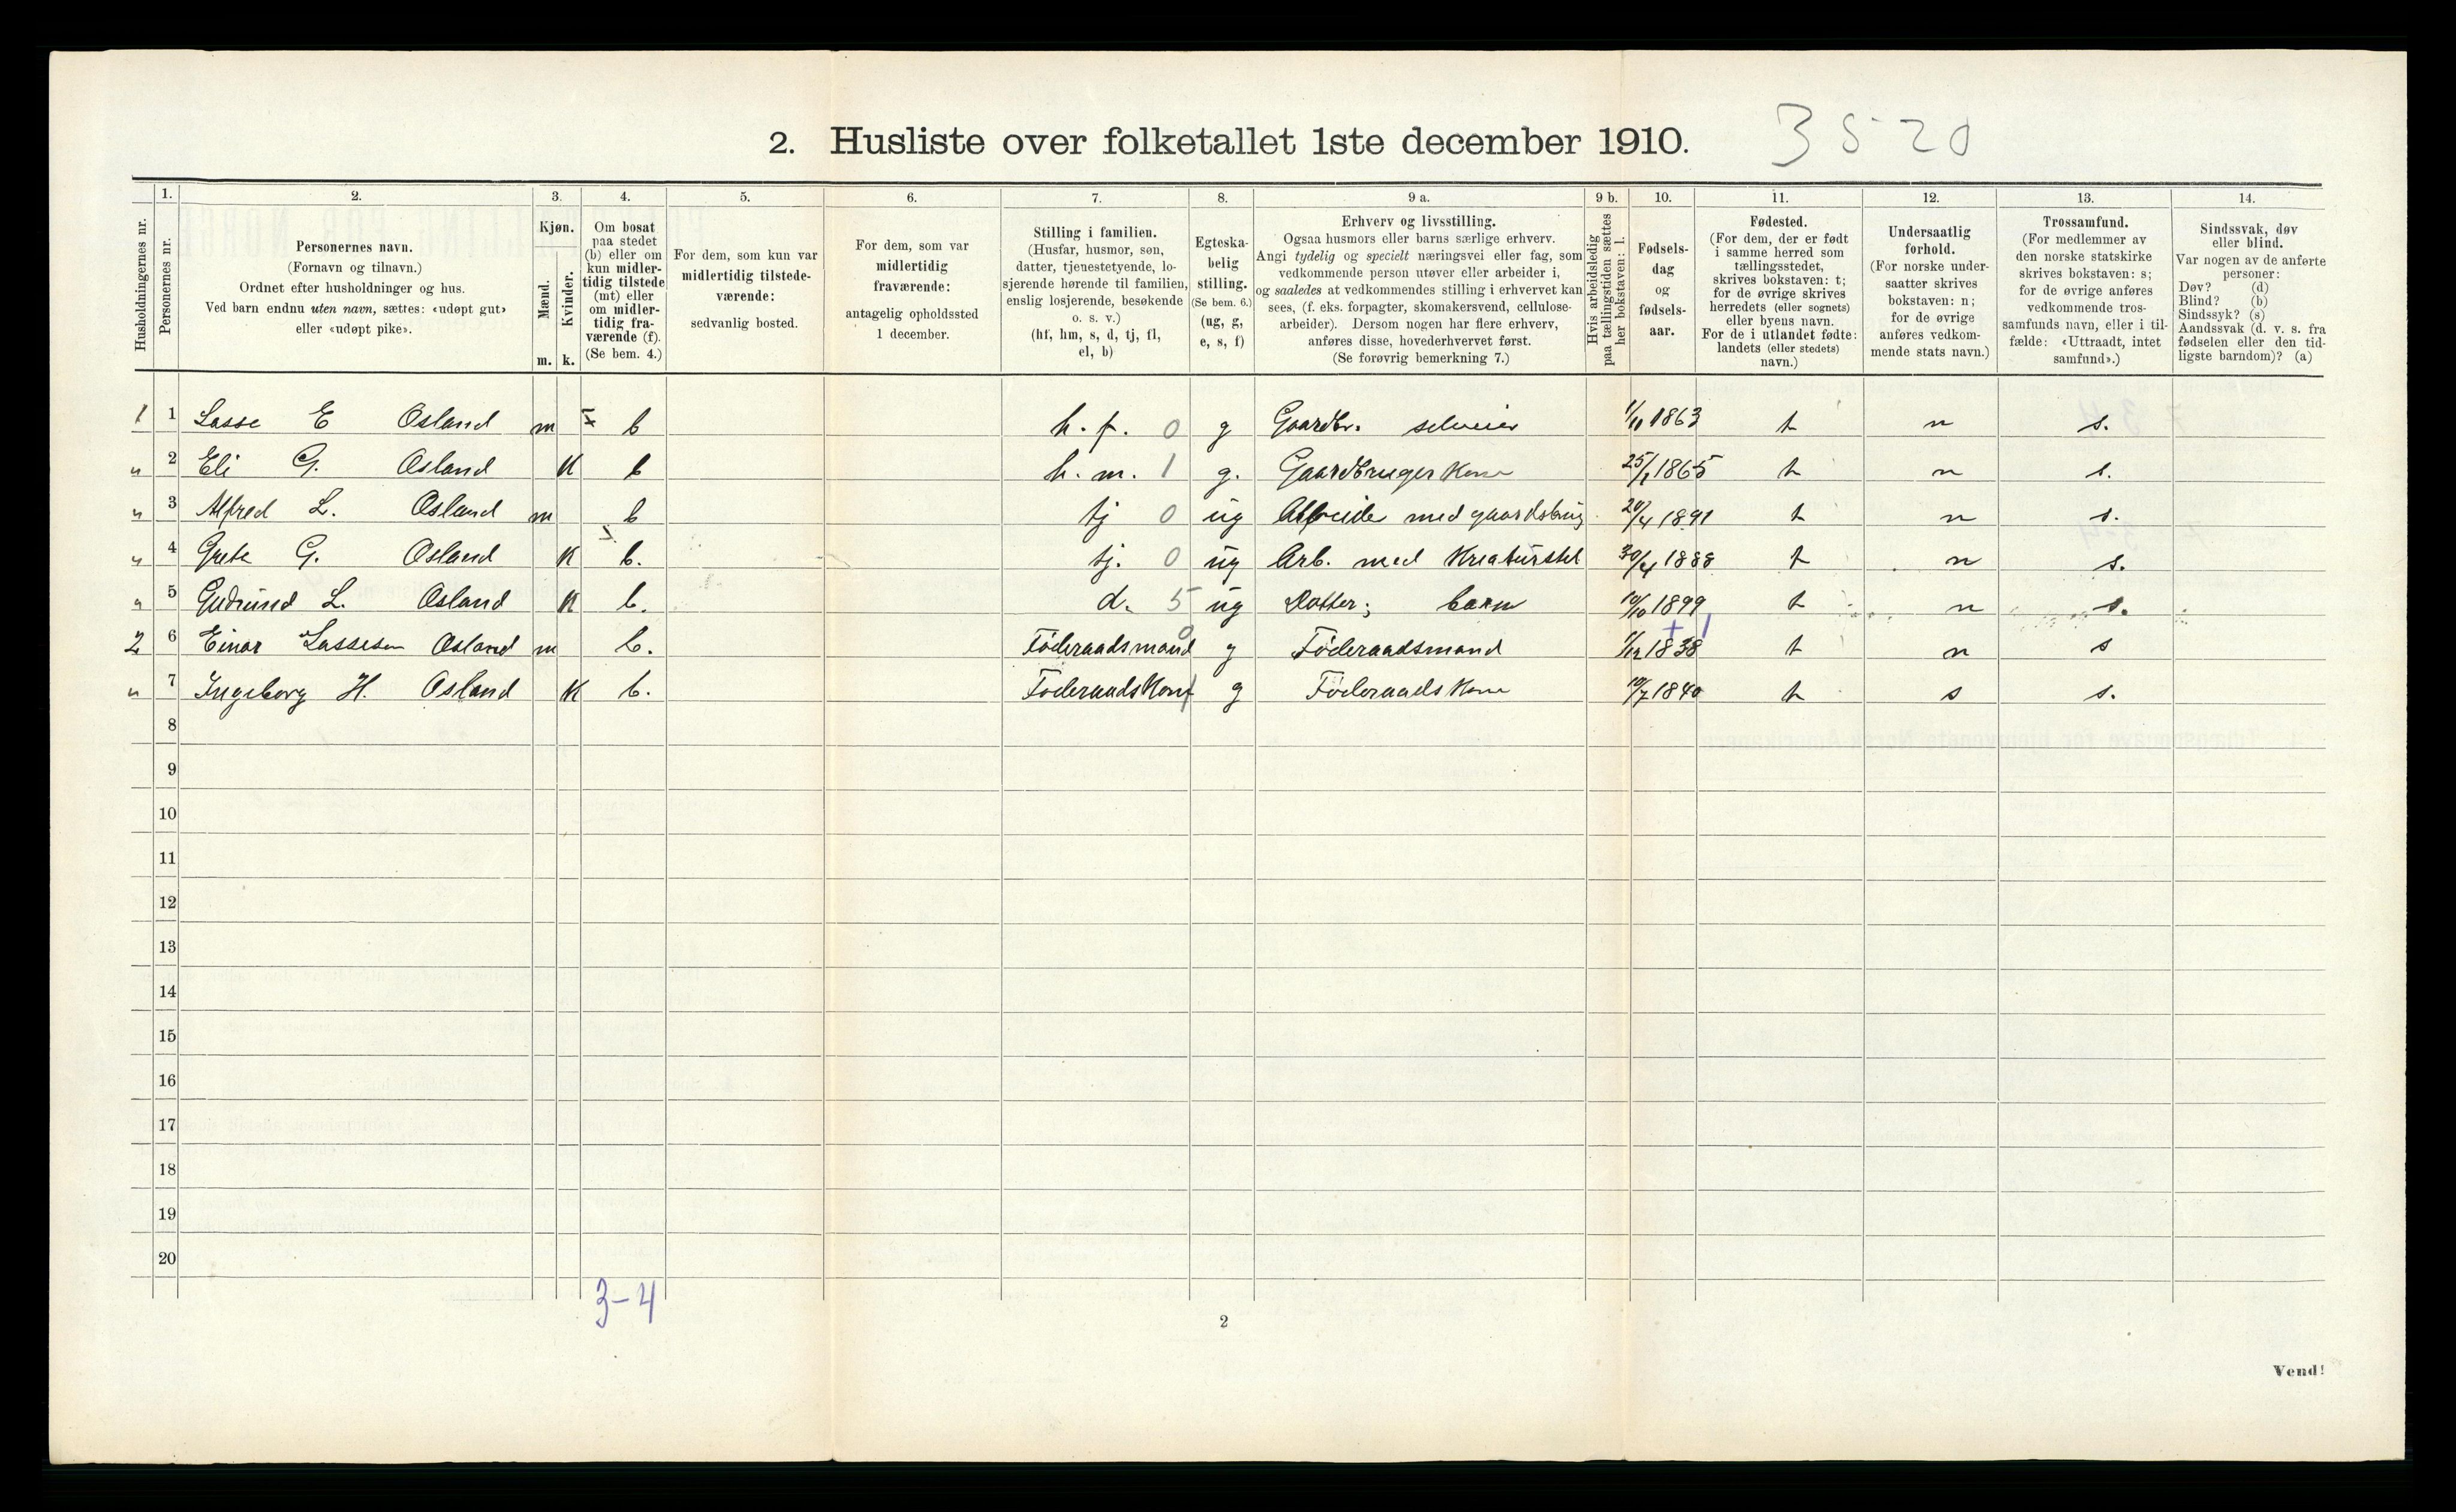 2. Husliste over folketallet 1ste december 1910. 3520
1. 2. 3. 4. 5. 6. 7. 8. 9 a. 9 b. 10. 11. 12. 13. 14.
Husholdningernes nr.
Personernes nr.
Personernes navn.
(Fornavn og tilnavn.)
Ordnet efter husholdninger og hus.
Ved barn endnu uten navn, sættes: «udøpt gut»
eller «udøpt pike».
Kjøn.
Mænd.
Kvinder.
m. k.
Om bosat
paa stedet
(b) eller om
kun midler-
tidig tilstede
(mt) eller
om midler-
tidig fra-
værende (f).
(Se bem. 4.)
For dem, som kun var
midlertidig tilstede-
værende:
sedvanlig bosted.
For dem, som var
midlertidig
fraværende:
antagelig opholdssted
1 december.
Stilling i familien.
(Husfar, husmor, søn,
datter, tjenestetyende, lo-
sjerende hørende til familien,
enslig losjerende, besøkende
o. s. v.)
(hf, hm, s, d, tj, fl,
el, b)
Egteska-
belig
stilling.
(Se bem. 6.)
(ug, g,
e, s, f)
Erhverv og livsstilling.
Ogsaa husmors eller barns særlige erhverv.
Angi tydelig og specielt næringsvei eller fag, som
vedkommende person utøver eller arbeider i,
og saaledes at vedkommendes stilling i erhvervet kan
sees, (f. eks. forpagter, skomakersvend, cellulose-
arbeider). Dersom nogen har flere erhverv,
anføres disse, hovederhvervet først.
(Se forøvrig bemerkning 7.)
Hvis arbeidsledig
paa tællingstiden sættes
her bokstaven: l.
Fødsels-
dag
og
fødsels-
aar.
Fødested.
(For dem, der er født
i samme herred som
tællingsstedet,
skrives bokstaven: t;
for de øvrige skrives
herredets (eller sognets)
eller byens navn.
For de i utlandet fødte:
landets (eller stedets)
navn.)
Undersaatlig
forhold.
(For norske under-
saatter skrives
bokstaven: n;
for de øvrige
anføres vedkom-
mende stats navn.)
Trossamfund.
(For medlemmer av
den norske statskirke
skrives bokstaven: s;
for de øvrige anføres
vedkommende tros-
samfunds navn, eller i til-
fælde: «Uttraadt, intet
samfund».)
Sindssvak, døv
eller blind.
Var nogen av de anførte
personer:
Døv? (d)
Blind? (b)
Sindssyk? (s)
Aandssvak (d. v. s. fra
fødselen eller den tid-
ligste barndom)? (a)
1 1 Lasse E Osland m b h. f. 0 g Gaardbr. selveier 1/11 1863 t n s.
" 2 Eli G. Osland K b h. m. 1 g. GaardbrugerKone 25/1 1865 t n s.
" 3 Alfred L. Osland m b tj 0 ug Arbeider med gaardsbrug 20/4 1891 t n s.
" 4 Grete G. Osland K b. tj. 0 ug Arb. med Kreaturstel 30/4 1888 t n s.
" 5 Gudrund L. Osland K b. d. 5 ug Datter; barn 10/10 1899 t n s.
2 6 Einar Lassesen Osland m b. Föderaadsmand 0 g Föderaadsmand 1/12 1838 t n s
" 7 Ingeborg H. Osland K b. FöderaadsKone g FöderaadsKone 10/7 1840 t s s.
8
9
10
11
12
13
14
15
16
17
18
19
20
3-4
2
Vend!